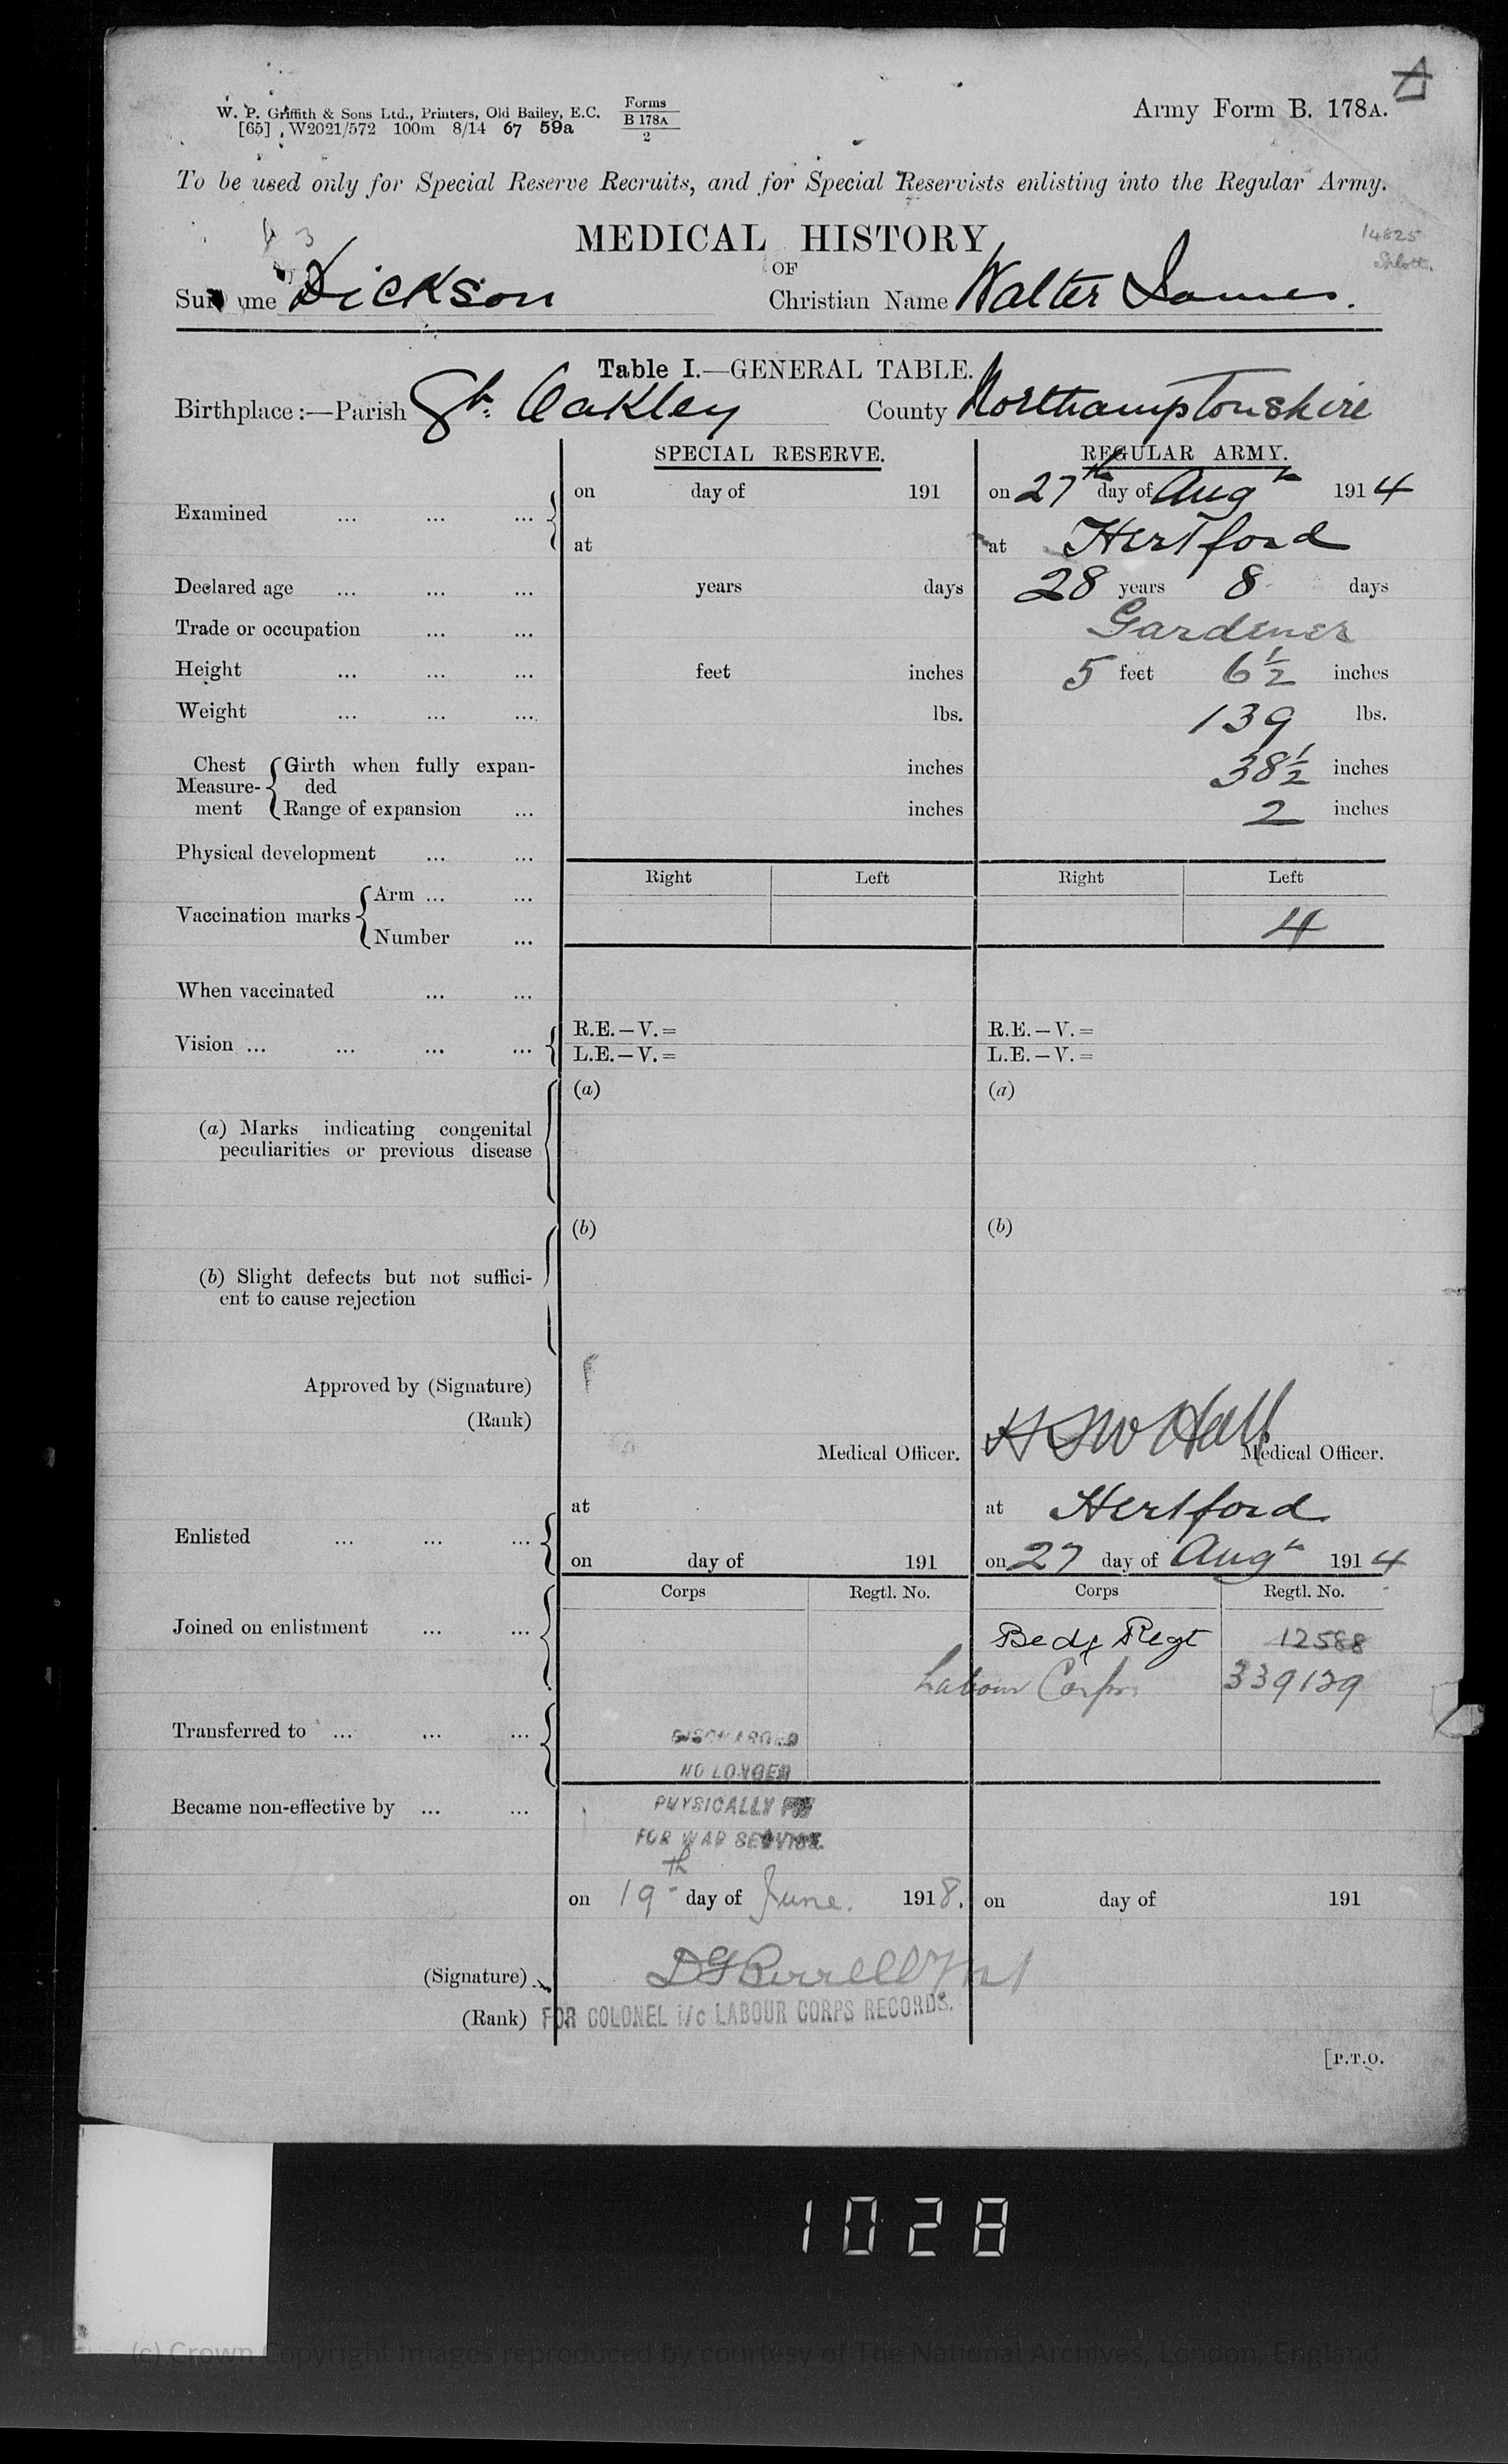 W. P. Griffith & Sons Ltd., Printers, Old Bailey, E.C.
[65] W2021/572 100m 8/14 67 59a
Forms
B 178A
2
Army Form B. 178A.
To be used only for Special Reserve Recruits, and for Special Reservists enlisting into the Regular Army.
MEDICAL HISTORY
14825
OF
Surname Dickson Christian Name Walter James.
Table I.—GENERAL TABLE.
Birthplace:—Parish Gt. Oakley County Northamptonshire
SPECIAL RESERVE. REGULAR ARMY.
Examined ... ... ... on day of 191 on 27th day of Aug 1914
at at Hertford
Declared age ... ... ... years days 28 years 8 days
Trade or occupation ... ... Gardener
Height ... ... ... feet inches 5 feet 6½ inches
Weight ... ... ... lbs. 139 lbs.
Chest Measurement Girth when fully expanded inches 38½ inches
Range of expansion ... inches 2 inches
Physical development ... ...
Right Left Right Left
Vaccination marks Arm ... ...
Number ... 4
When vaccinated ... ...
Vision ... ... ... ... R.E.—V.= R.E.—V.=
L.E.—V.= L.E.—V.=
(a) (a)
(a) Marks indicating congenital
peculiarities or previous disease
(b) (b)
(b) Slight defects but not suffici-
ent to cause rejection
Approved by (Signature)
(Rank)
Hall
Medical Officer. Medical Officer.
at at Hertford
Enlisted ... ... ...
on day of 191 on 27 day of Aug 1914
Corps Regtl. No. Corps Regtl. No.
Joined on enlistment ... ... Bedf Regt 12588
Labour Corps 339129
Transferred to ... ... ...
DISCHARGED
NO LONGER
Became non-effective by ... ... PHYSICALLY FIT
FOR WAR SERVICE.
on 19th day of June. 1918. on day of 191
(Signature)
(Rank) FOR COLONEL i/c LABOUR CORPS RECORDS.
[P.T.O.
1028
(c) Crown Copyright Images reproduced by courtesy of The National Archives, London, England